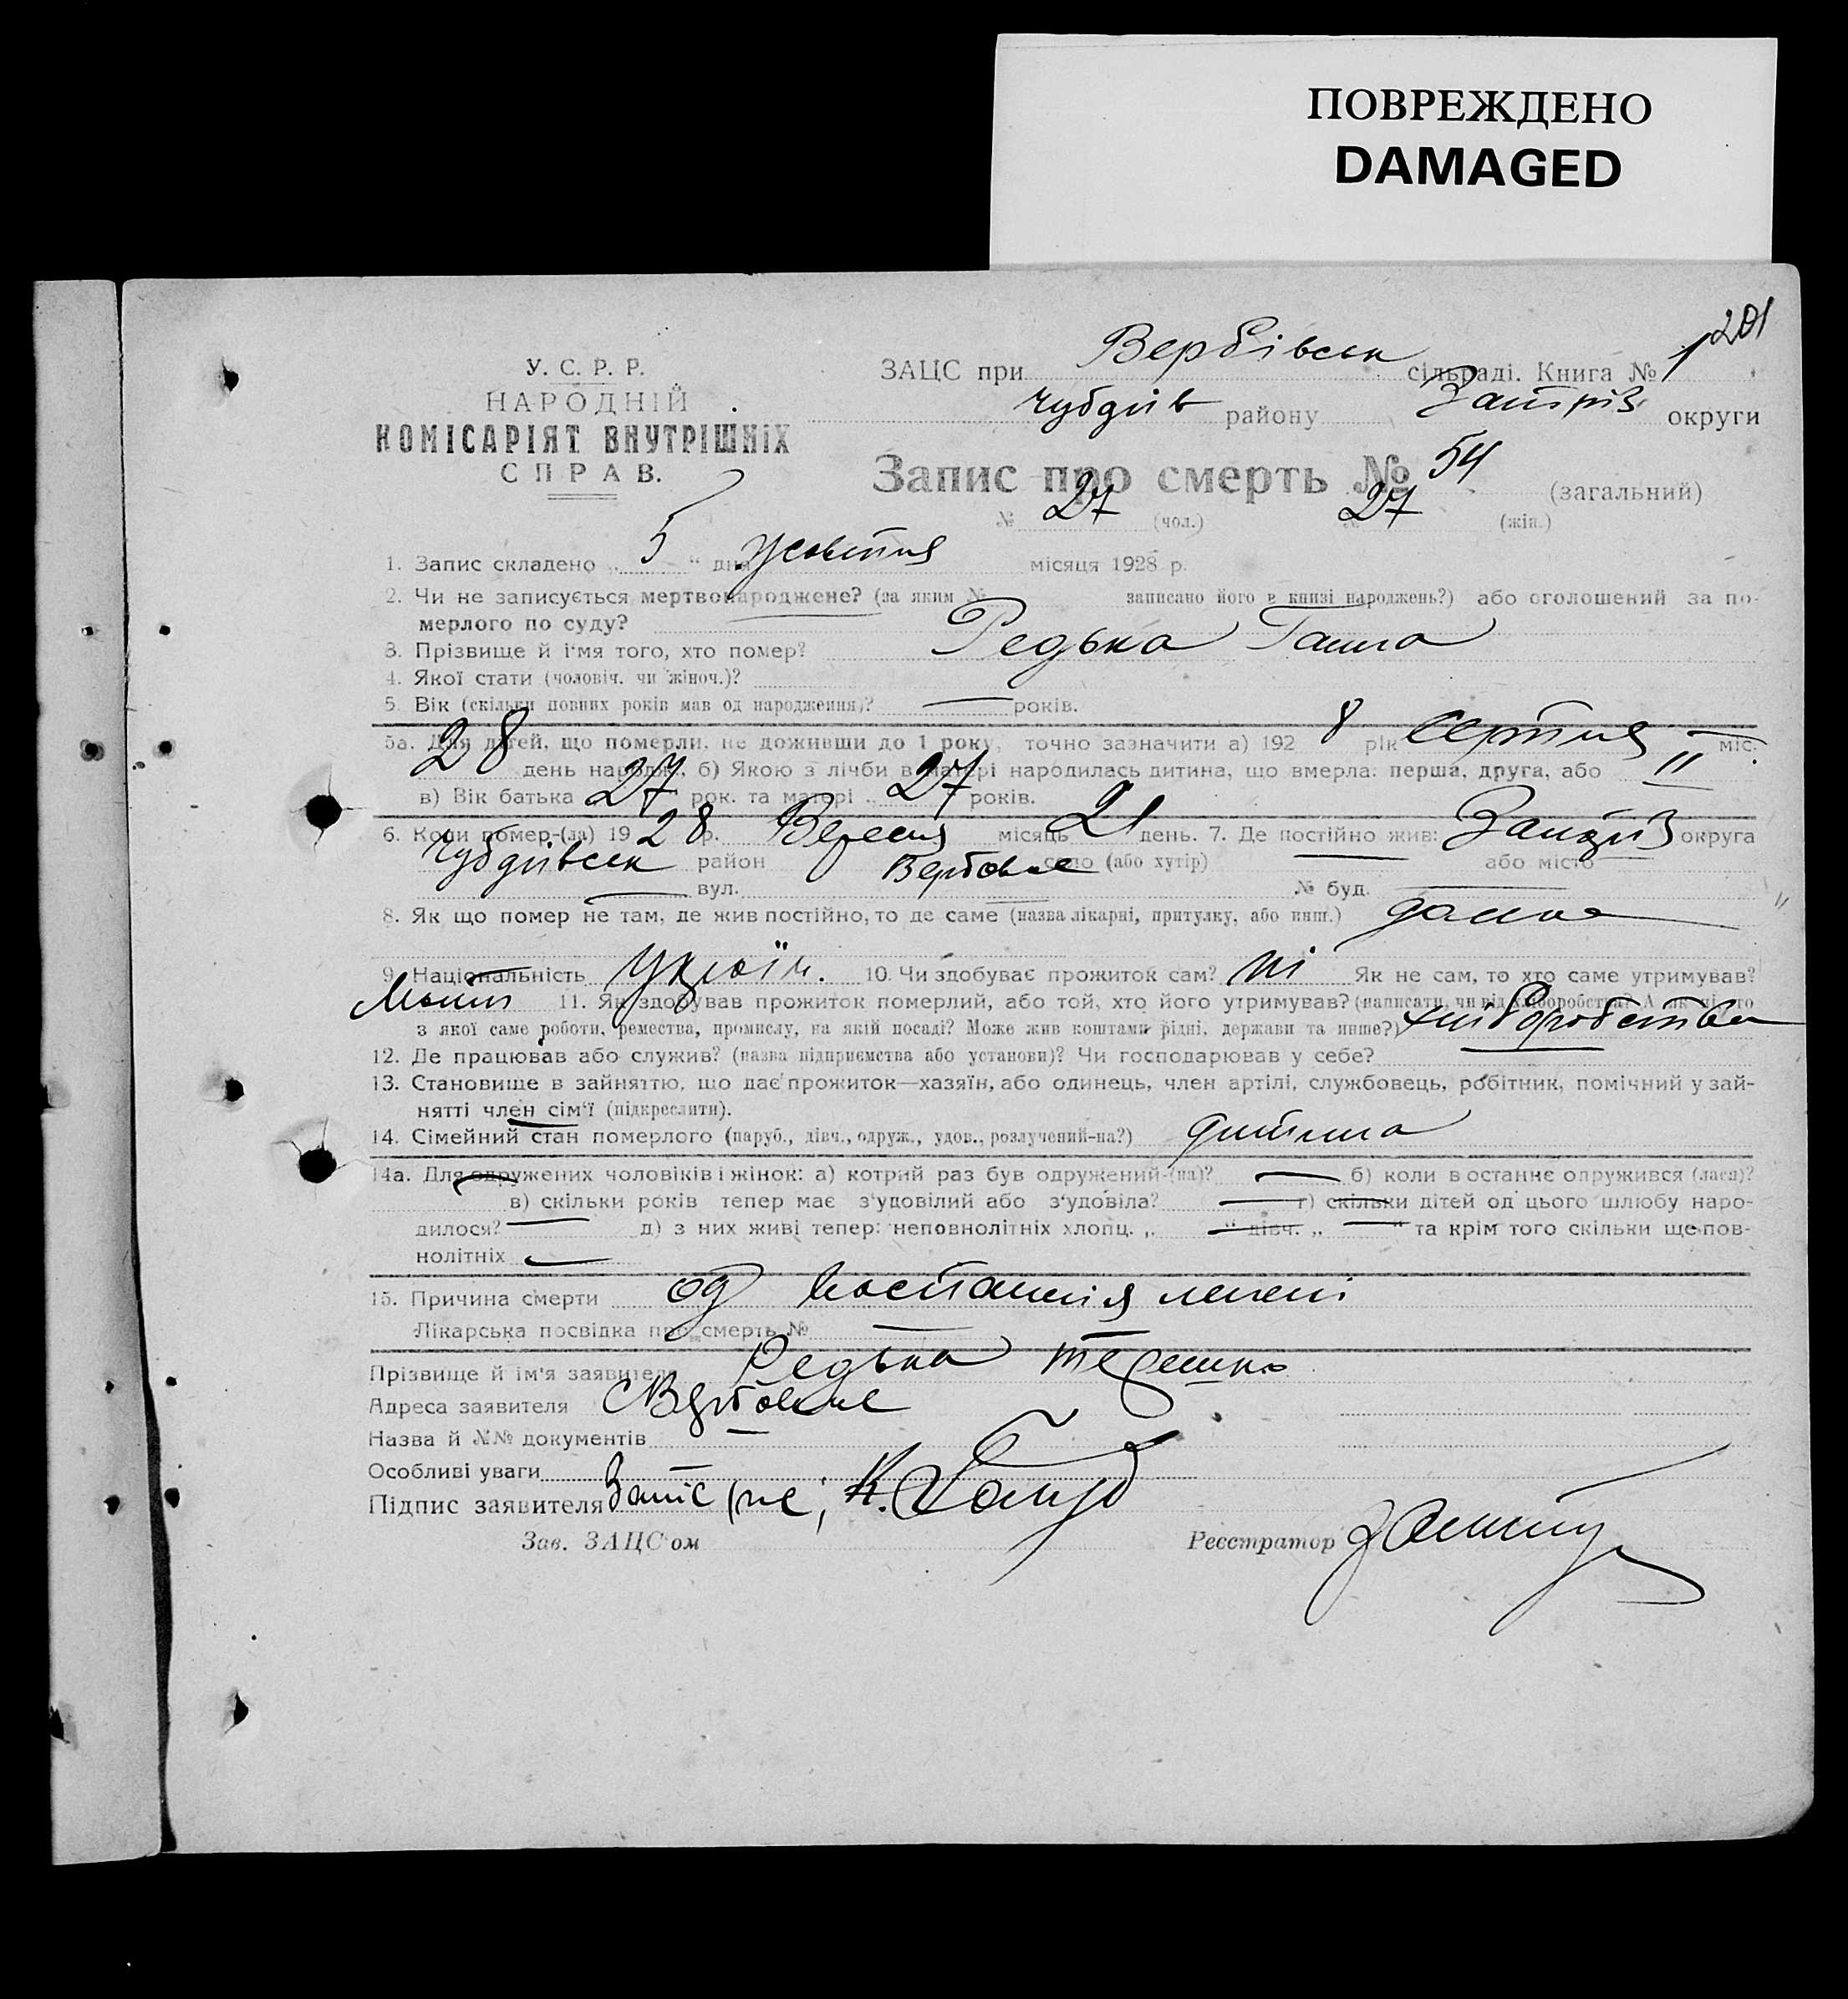 ПОВРЕЖДЕНО
DAMAGED
201
У. С. Р. Р.
НАРОДНІЙ
КОМІСАРІЯТ ВНУТРІШНІХ
СПРАВ.
ЗАЦС при Вербівськ сільраді. Книга № 1
Чубдів району Запоріз. округи
Запис про смерть № 54 (загальний)
№ 27 (чол.) № 27 (жін.)
1. Запис складено „ 5 “ дня жовтня місяця 1928 р.
2. Чи не записується мертвонароджене? (за яким № записано його в книзі народжень?) або оголошений за по-
мерлого по суду?
3. Прізвище й і'мя того, хто помер? Редька Ганна
4. Якої стати (чоловіч. чи жіноч.)?
5. Вік (скільки повних років мав од народження)? — років.
5а. Для дітей, що померли, не доживши до 1 року, точно зазначити а) 192 8 рік серпня міс.
28 день народж., б) Якою з лічби в матері народилась дитина, що вмерла: перша, друга, або II
в) Вік батька 27 рок. та матері „ 27 років.
6. Коли помер-(ла) 19 28 р. Вересня місяць 21 день. 7. Де постійно жив: Запоріз округа
Чубдрівськ район Вербове село (або хутір) — або місто
— вул. № буд. —
8. Як що помер не там, де жив постійно, то де саме (назва лікарні, притулку, або инш.) дома
9. Національність Україн. 10. Чи здобуває прожиток сам? Ні Як не сам, то хто саме утримував?
Мати 11. Як здобував прожиток померлий, або той, хто його утримував? (написати, чи від хлiборобства? А як ні, то
з якої саме роботи, ремества, промислу, на якій посаді? Може жив коштами рідні, держави та инше?) хліборобства
12. Де працював або служив? (назва підприємства або установи)? Чи господарював у себе?
13. Становище в зайняттю, що дає прожиток—хазяїн, або одинець, член артілі, службовець, робітник, помічний у зай-
нятті член сім'ї (підкреслити).
14. Сімейний стан померлого (паруб., дівч., одруж., удов., розлучений-на?) дитина
14а. Для одружених чоловіків і жінок: а) котрий раз був одружений-(на)? — б) коли востаннє одружився (лася)?
в) скільки років тепер має з'удовілий або з'удовіла? — г) скільки дітей од цього шлюбу наро-
дилося? — д) з них живі тепер: неповнолітніх хлопц. „ — “ дівч. „ — “ та крім того скільки ще пов-
нолітніх —
15. Причина смерти од воспаленія легені
Лікарська посвідка про смерть № —
Прізвище й ім'я заявителя Редька
Адреса заявителя С Вербове
Назва й №№ документів
Особливі уваги —
Підпис заявителя
Зав. ЗАЦС'ом
Реєстратор